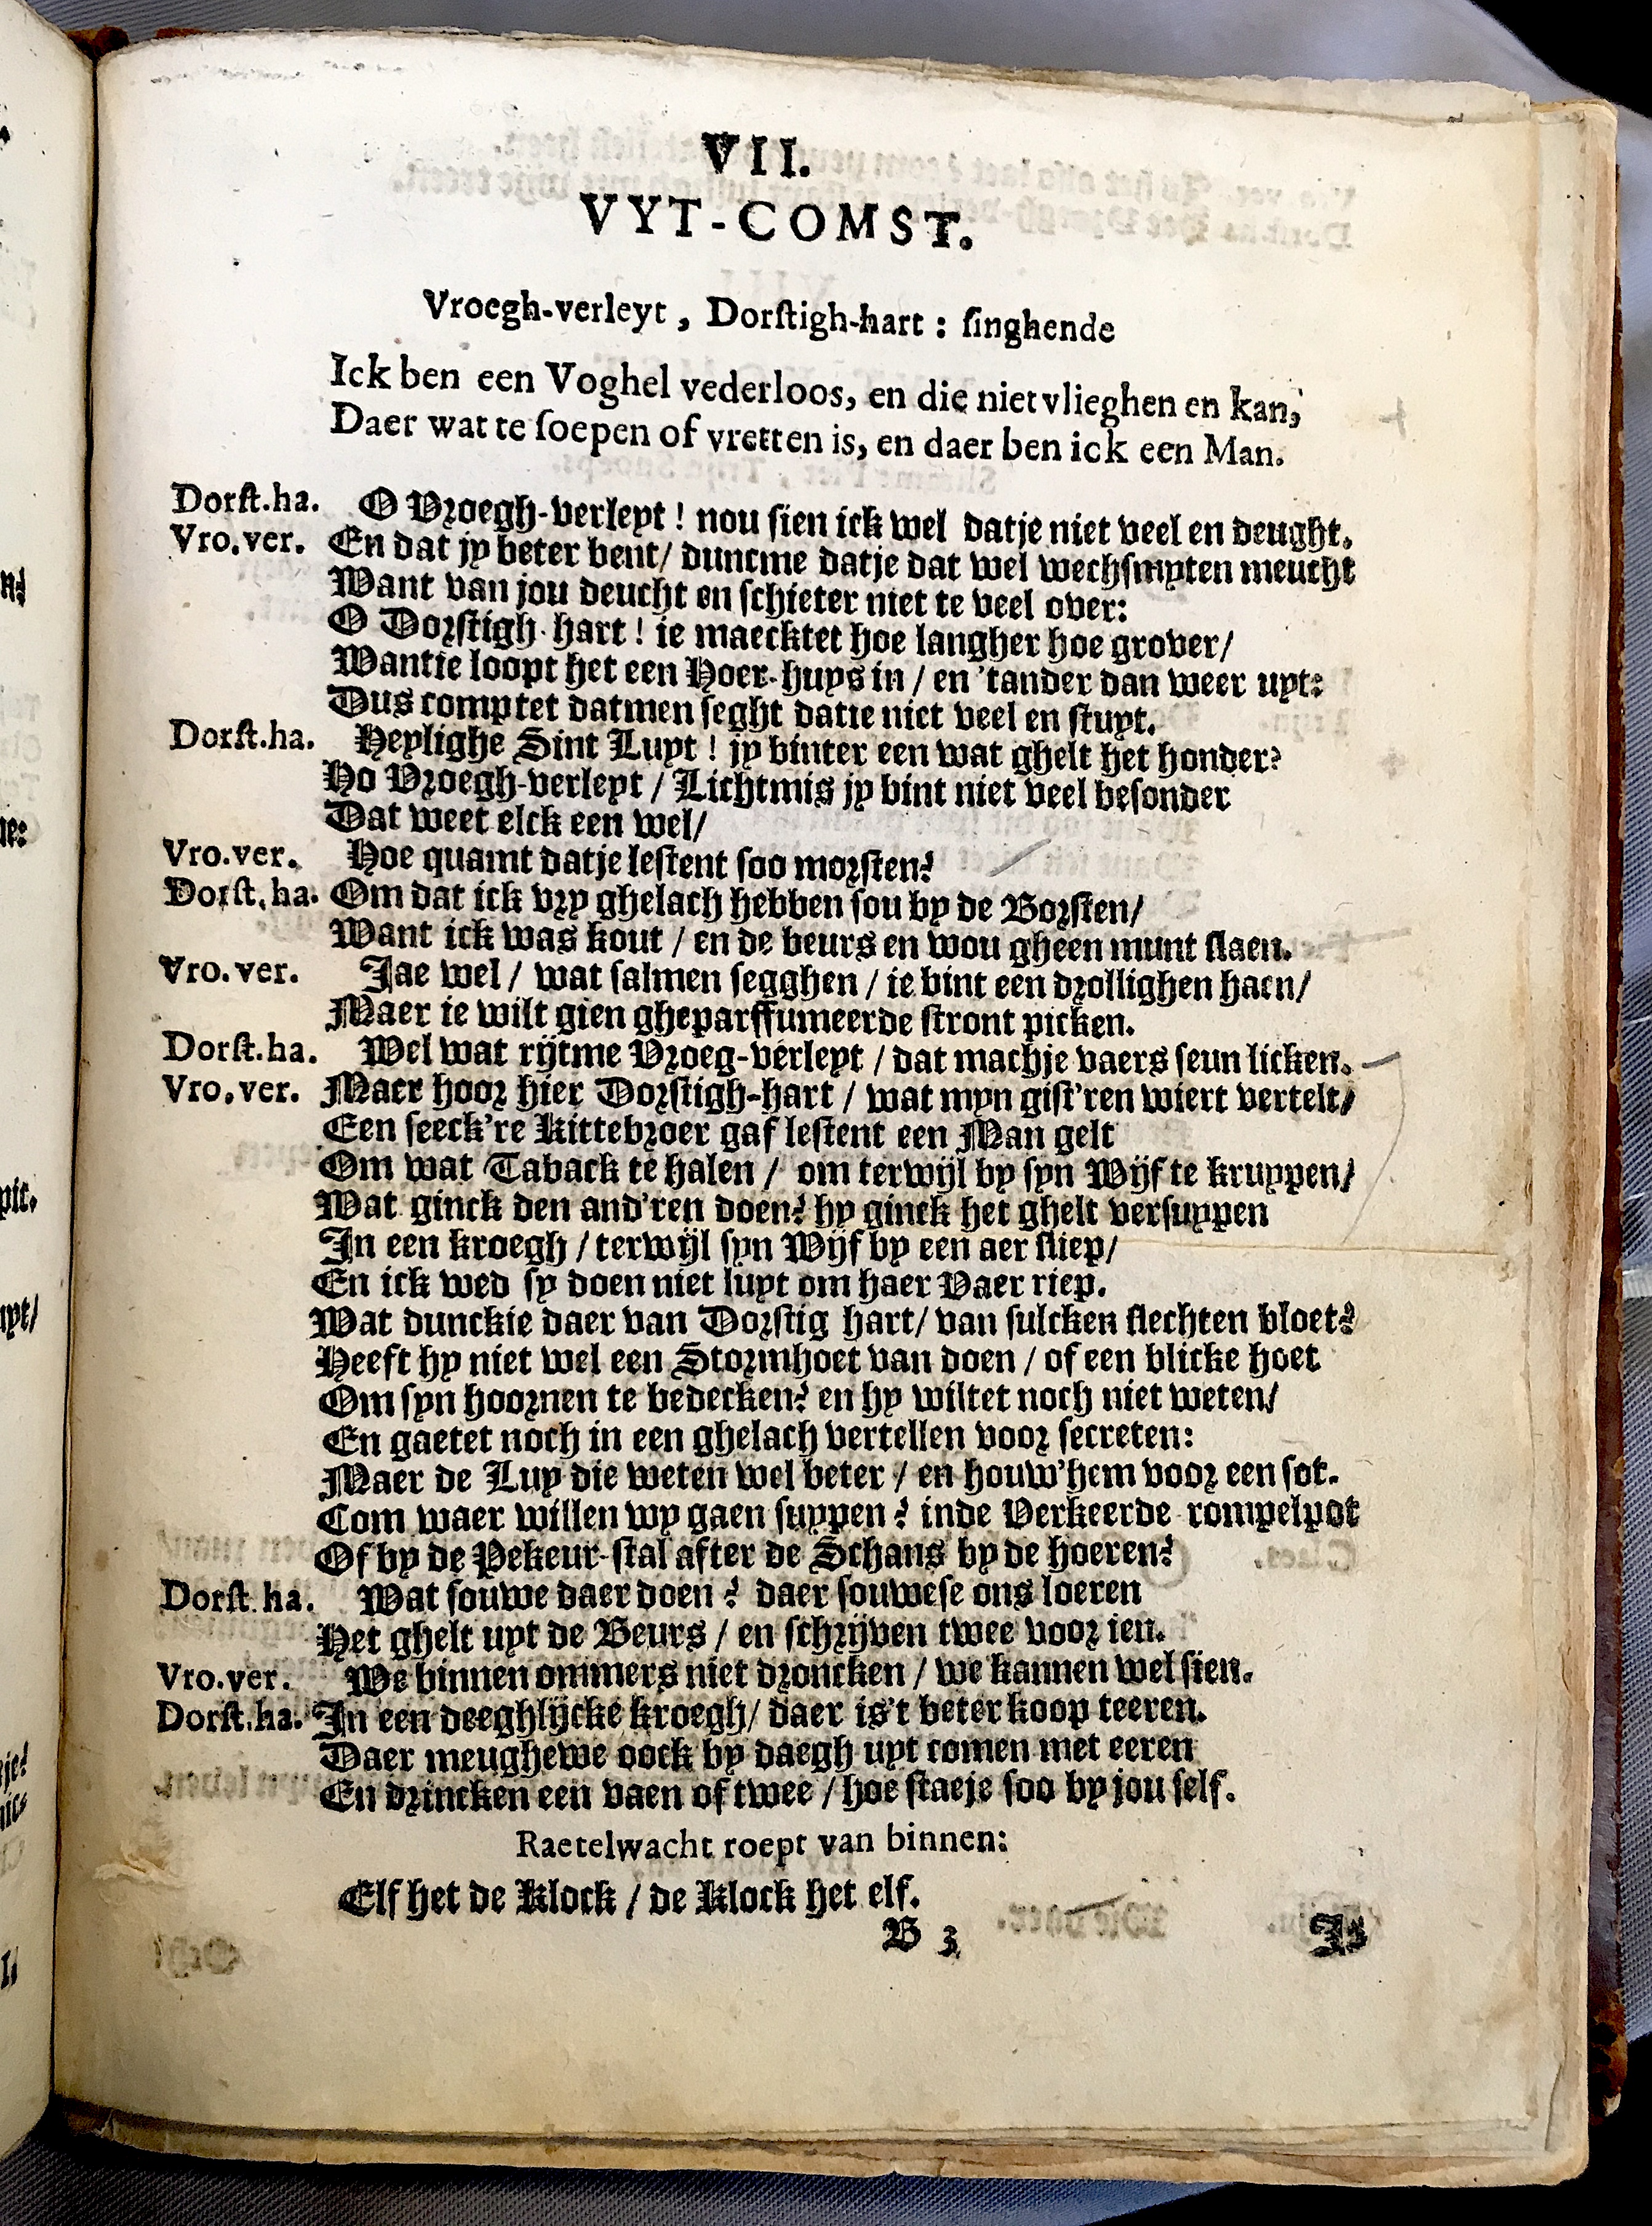 VII.
VYT-COMST.
Vroegh-verleyt, Dorstigh-hart: singhende
Ick ben een Voghel vederloos, en die niet vlieghen en kan,
Daer wat te soepen of vretten is, en daer ben ick een Man.
Dorst.ha. O Vroegh-verleyt! nou sien ick wel datje niet veel en deught.
Vro.ver. En dat jy beter bent/ duncme datje dat wel wechsmyten meucht
Want van jou deucht en schieter niet te veel over:
O Dorstigh-hart! ie maecktet hoe langher hoe grover/
Wantie loopt het een Hoer-huys in/ en 'tander dan weer uyt:
Dus comptet datmen seght datie niet veel en stuyt.
Dorst.ha. Heylighe Sint Luyt! jy binter een wat ghelt het honder?
Ho Vroegh-verleyt/ Lichtmis jy bint niet veel besonder
Dat weet elck een wel/
Vro.ver. Hoe quamt datje lestent soo morsten?
Dorst.ha. Om dat ick vry ghelach hebben sou by de Borsten/
Want ick was kout/ en de beurs en wou gheen munt slaen.
Vro.ver. Jae wel/ wat salmen segghen/ ie bint een drollighen haen/
Maer ie wilt gien gheparffumeerde stront picken.
Dorst.ha. Wel wat rijtme Vroeg-verleyt/ dat machje vaers seun licken.
Vro.ver. Maer hoor hier Dorstigh-hart/ wat myn gist'ren wiert vertelt/
Een seeck're Kittebroer gaf lestent een Man gelt
Om wat Taback te halen/ om terwijl by syn Wijf te kruypen/
Wat ginck den and'ren doen? hy ginck het ghelt versuypen
In een kroegh/ terwijl syn Wijf by een aer sliep/
En ick wed sy doen niet luyt om haer Vaer riep.
Wat dunckie daer van Dorstig hart/ van sulcken slechten bloet?
Heeft hy niet wel een Stormhoet van doen/ of een blicke hoet
Om syn hoornen te bedecken? en hy wiltet noch niet weten/
En gaetet noch in een ghelach vertellen voor secreten:
Maer de Luy die weten wel beter/ en houw'hem voor een sot.
Com waer willen wy gaen suypen? inde Verkeerde rompelpot
Of by de Pekeur-stal after de Schans by de hoeren?
Dorst.ha. Wat souwe daer doen? daer souwese ons loeren
Het ghelt uyt de Beurs/ en schrijven twee voor ien.
Vro.ver. We binnen ommers niet droncken/ we kannen wel sien.
Dorst.ha. In een deeghlijcke kroegh/ daer is't beter koop teeren.
Daer meughewe oock by daegh uyt comen met eeren
En drincken een vaen of twee/ hoe staeje soo by jou self.
Raetelwacht roept van binnen:
Elf het de Klock/ de Klock het elf.
B 3 Is